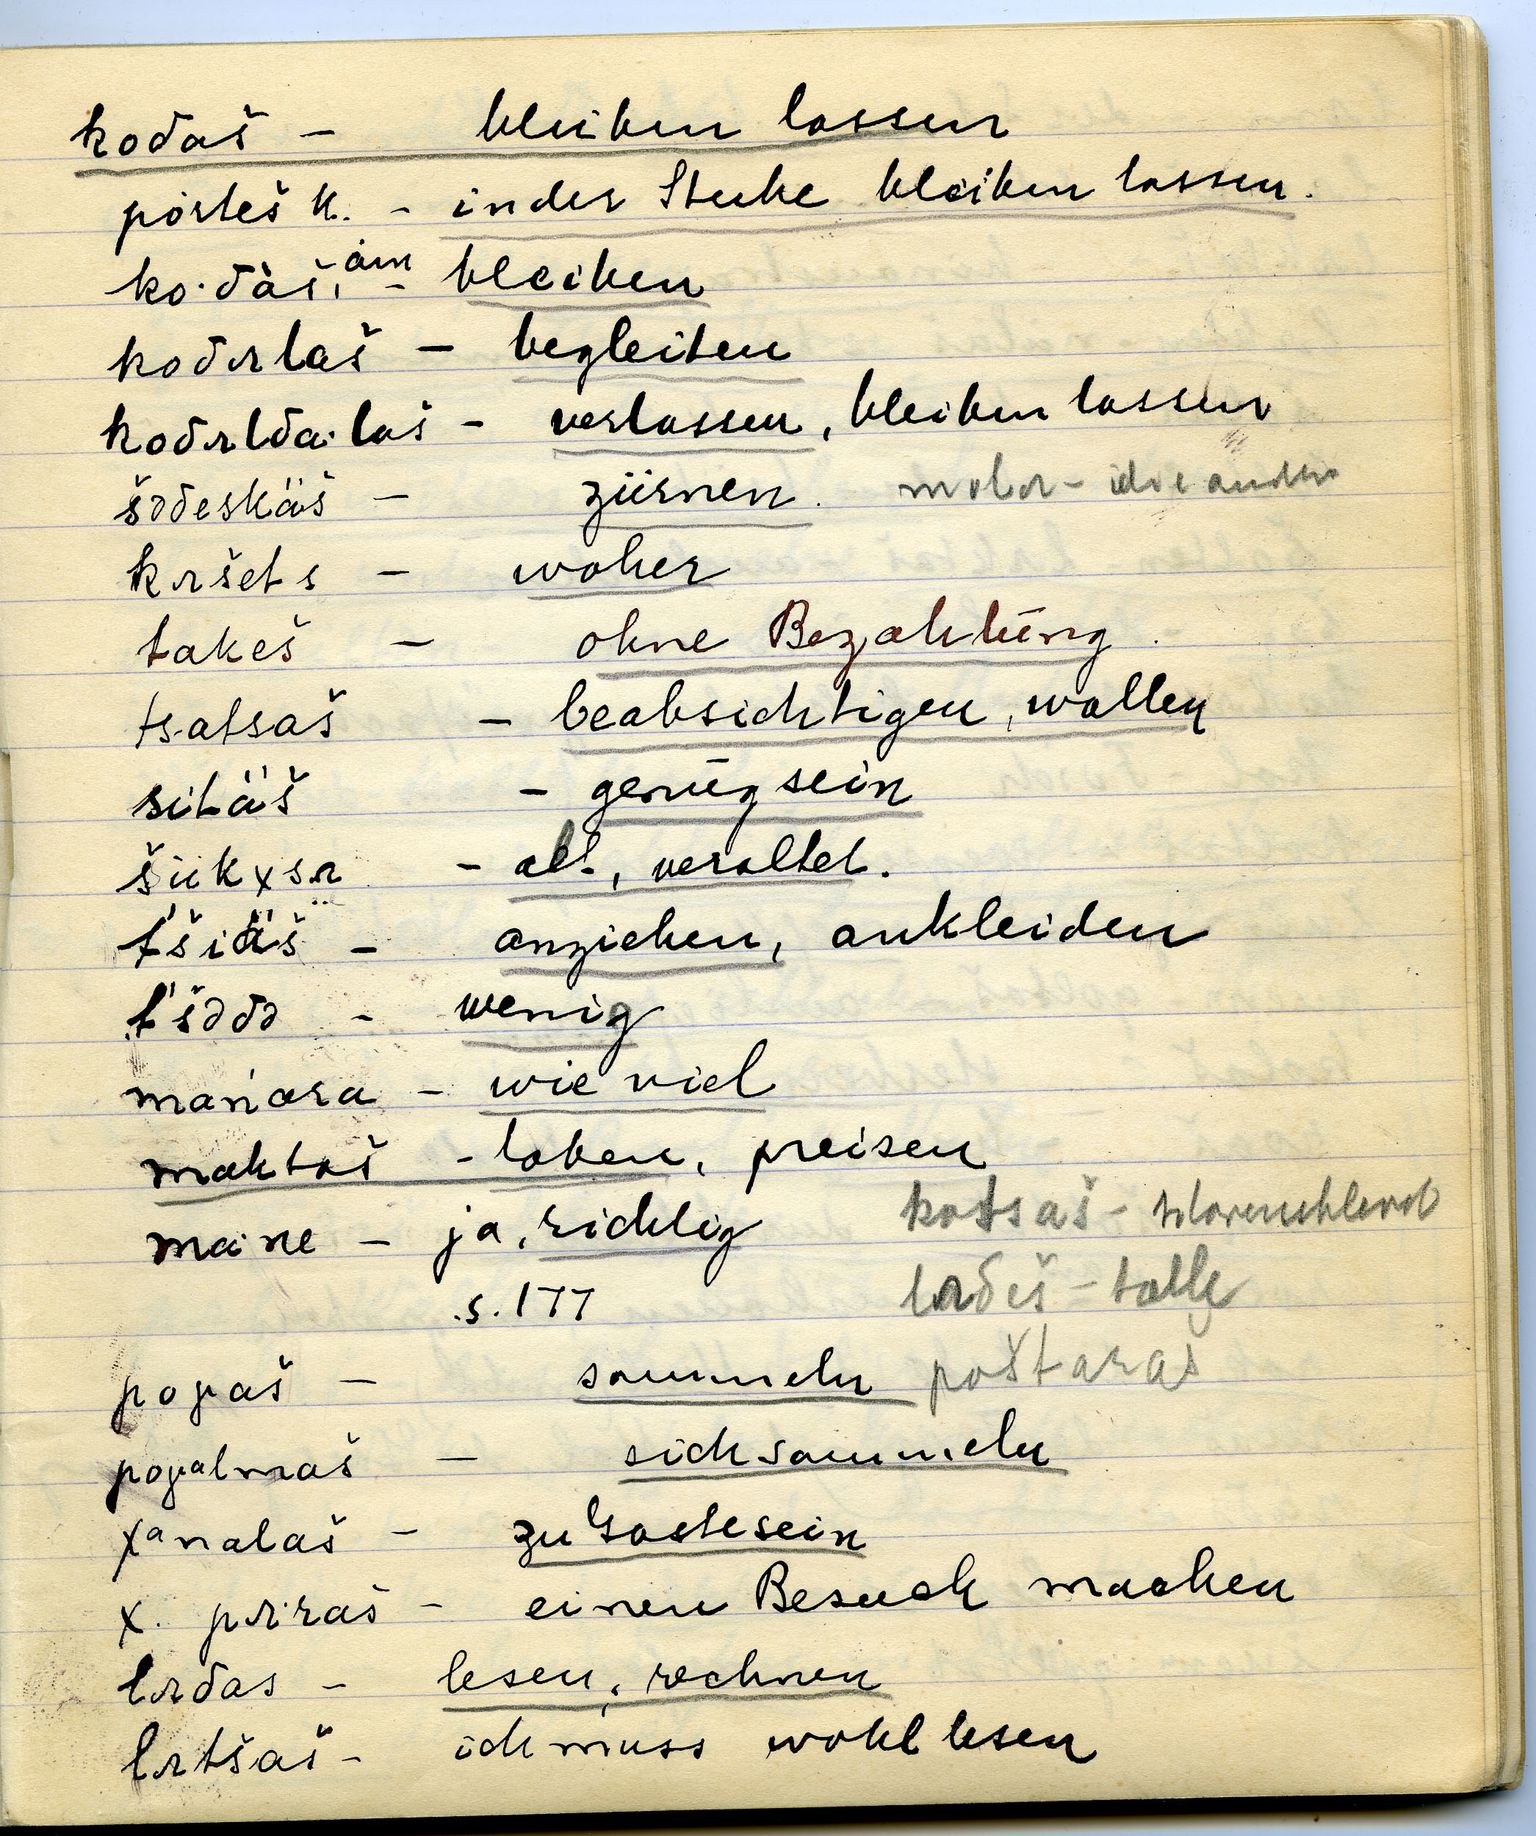 kođaš – bleiben lassen
pörtəš k. – in der Stube bleiben lassen.
ko·đàš, am – bleiben
kođʌlaš – begleiten
kođʌlđa·laš – verlassen, bleiben lassen
šəđeskäš – zürnen. molʌ – andere
kʌšets – woher
takeš – ohne Bezahlūng.
tsatsaš – beabsichtigen, wollen
sitäš – genūg sein
šükχsʌ – alt, veraltet.
t́šiäš – anziehen, ankleiden
t́šəđə – wenig
mańara – wie viel
maktaš – loben, preisen
ma·ne – ja, richtig kotsaš –
s. 177 lʌđeš –
poɣaš – sammeln poštaraš
poɣalmaš – sich sammeln
χanalaš – zu Gaste sein
χ. pʌ·raš – einen Besuch machen
lʌđas – lesen, rechnen
lʌtšaš – ich muss wohl lesen